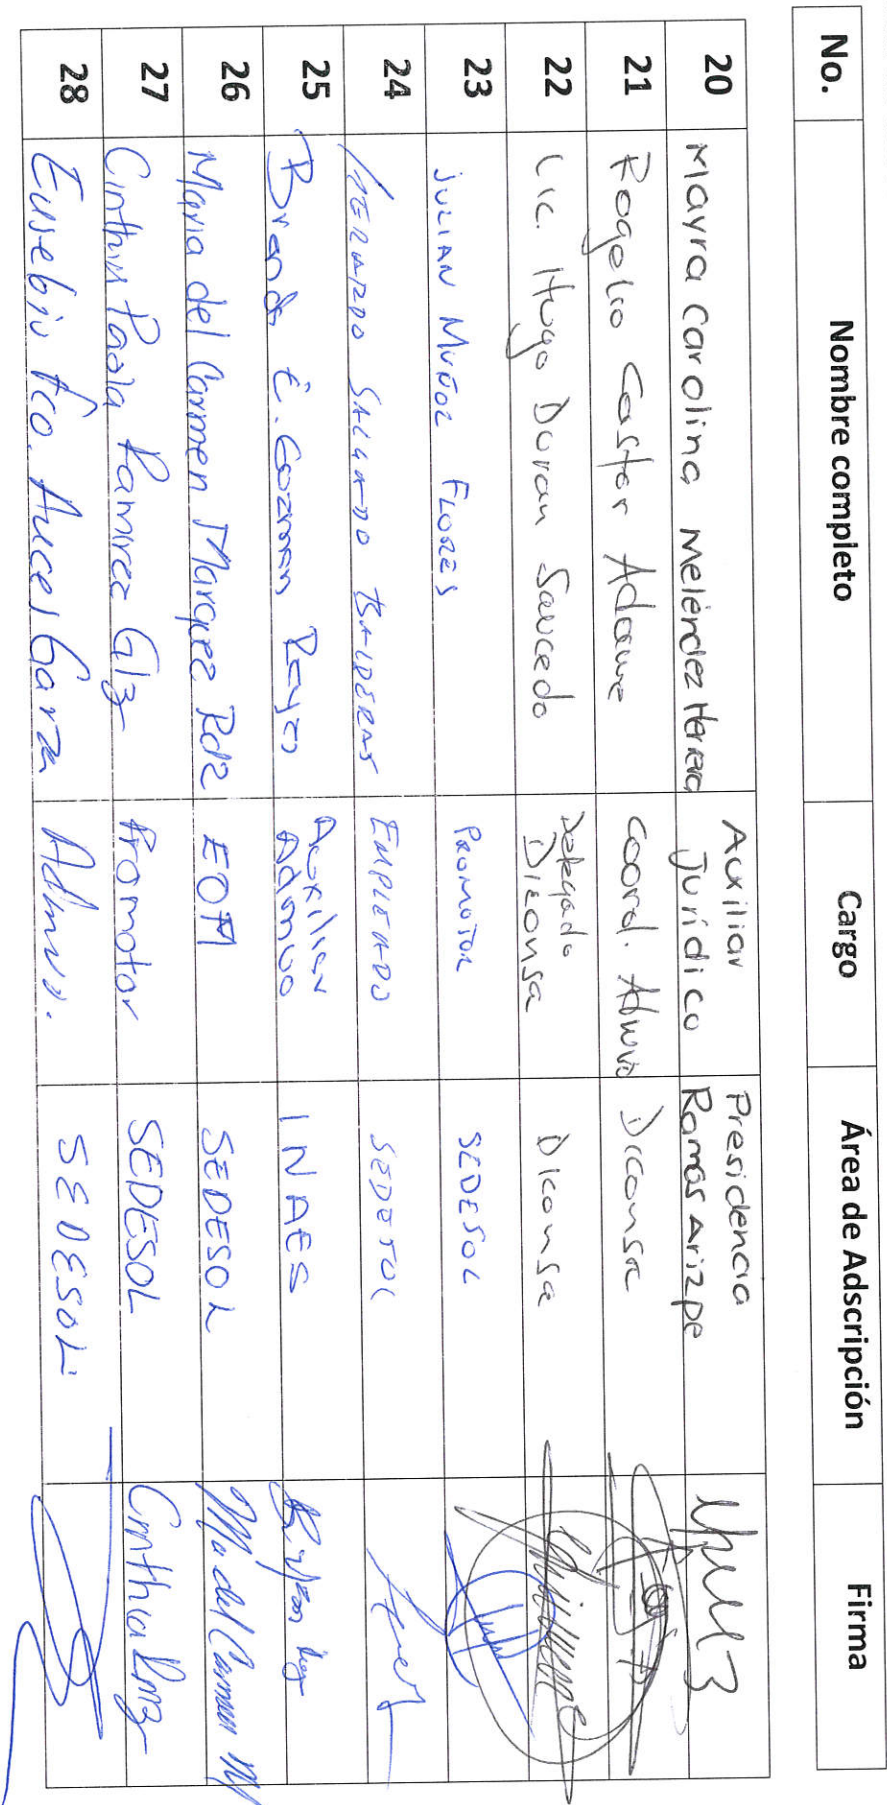 No. Nombre completo Cargo Área de Adscripción Firma
20 Mayra Carolina Meléndez Herrera Auxiliar Jurídico Presidencia Ramos Arizpe
21 Rogelio Castor Adame Coord. Diconsa
22 Lic. Hugo Duran Saucedo Delegado Diconsa Diconsa
23 JULIAN MUÑOZ FLORES PROMOTOR SEDESOL
24 SALGADO BALDERAS EMPLEADO SEDESOL
25 Brenda E. Guzman Reyes Auxiliar Admivo INAES
26 Maria del Carmen Marquez Rdz EOM SEDESOL Ma del Carmen M
27 Cinthia Paola Ramirez Glz Promotor SEDESOL Cinthia Rmz
28 Eusebio Fco. Garza SEDESOL